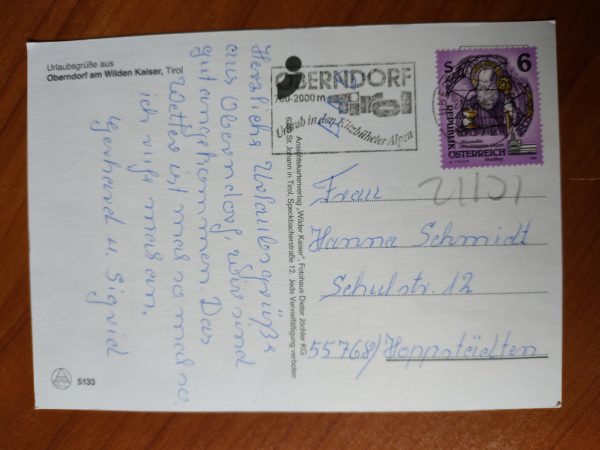 Urlaubsgrüße aus
Oberndorf am Wilden Kaiser, Tirol
Herzliche Urlaubsgrüße
aus Oberndorf, wir sind
gut angekommen. Das
Wetter ist mal so mal so.
ich rufe mal an.
Gerhard u. Sigrid
5133
Ansichtskartenverlag „Wilder Kaiser", Fotohaus Dieter Jöchler KG
6380 St. Johann in Tirol, Speckbacherstraße 12. Jede Vervielfältigung verboten
OBERNDORF
700-2000m
Tirol
Urlaub in den Kitzbüheler Alpen
S 6
REPUBLIK
ÖSTERREICH
Frau
Hanna Schmidt
Schulstr. 12
55768/Hoppstädten